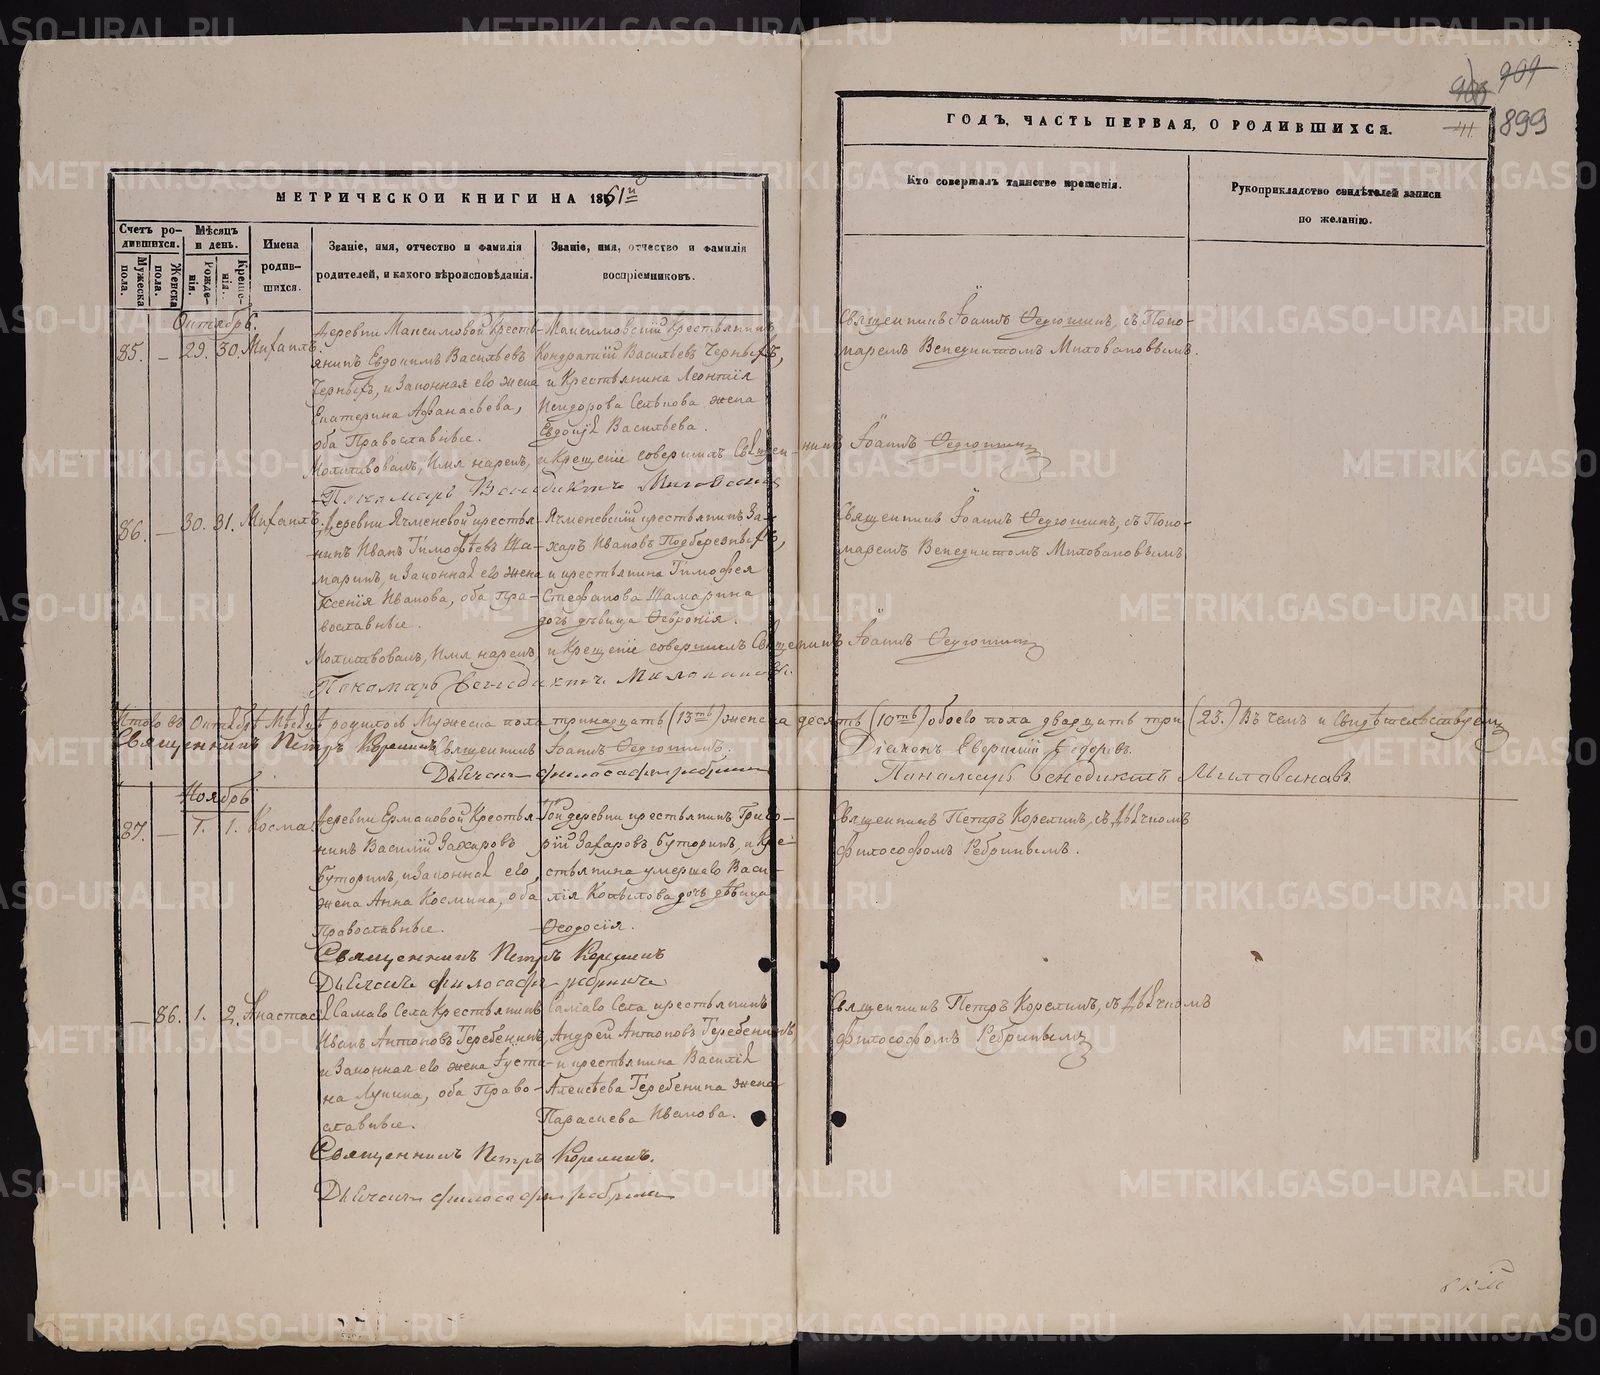 909
899
МЕТРИЧЕСКОЙ КНИГИ НА 1861й
ГОДЪ, ЧАСТЬ ПЕРВАЯ, О РОДИВШИХСЯ.
Счетъ родившихся.
Мужеска пола.
Женска пола.
Мѣсяцъ и день.
Рожденія.
Крещенія.
Имена родившихся.
Званіе, имя, отчество и фамилія
родителей, и какого вѣроисповѣданія.
Званіе, имя, отчество и фамилія
воспріемниковъ.
Кто совершалъ таинство крещенія.
Рукоприкладство свидѣтелей записи
по желанію.
Октябрь.
85. — 29. 30. Михаилъ.
Деревни Максимовой Кресть-
янинъ Евдокимъ Васильевъ
Черныхъ, и Законная его жена
Екатерина Афанасьева,
оба Православные.
Максимовскій Крестьянинъ
Кондратій Васильевъ Черныхъ,
и Крестьянина Леонтія
жена
Евдокія Васильева.
Священникъ Іоаннъ Ѳедюшинъ, съ Поно-
маремъ Венедиктомъ Миловановымъ.
Молитвовалъ, Имя нарекъ, и Крещеніе совершилъ Священникъ Іоаннъ Ѳедюшинъ
Пономарь Венедиктъ Миловановъ
86. — 30. 31. Михаилъ.
Деревни Ячменевой крестья-
нинъ Иванъ Тимофѣевъ Ша-
маринъ, и Законная его жена
Ксенія Иванова, оба Пра-
вославные.
Ячменевскій крестьянинъ За-
харъ Ивановъ Подберезныхъ,
и крестьянина Тимофея
Стефанова Шамарина
дочь дѣвица Ѳевронія.
Священникъ Іоаннъ Ѳедюшинъ, съ Поно-
маремъ Венедиктомъ Миловановымъ
Молитвовалъ, Имя нарекъ, и Крещеніе совершилъ Священникъ Іоаннъ Ѳедюшинъ
Пономарь Венедиктъ Миловановъ.
Итого въ Октябрѣ Мѣсяцѣ родилось Мужеска пола тринадцать (13ть) женска десять (10ть) обоего пола двадцать три (23.) Въ чемъ и Свидѣтельствуемъ
Священникъ Петръ Корелинъ Священникъ Іоаннъ Ѳедюшинъ.
Діаконъ Евгеній Ѳедоровъ.
Дьячокъ философъ ребринъ
Панамарь Венедиктъ Милавановъ
Ноябрь
87. — 1. 1. Косма.
Деревни Ермаковой Крестья-
нинъ Василій Захаровъ
Буторинъ, и Законная его
жена Анна Космина, оба
Православные.
Той деревни крестьянинъ Григо-
рій Захаровъ Буторинъ, и Кре-
стьянина умершаго Васи-
лія Копылова дочь дѣвица
Ѳеодосія.
Священникъ Петръ Корелинъ, съ Дьячкомъ
Философомъ Ребринымъ.
Священникъ Петръ Корелинъ
Дьячокъ философъ ребринъ
— 86. 1. 2. Анастасія
Самаго Села Крестьянинъ
Иванъ Антоновъ Теребенинъ,
и Законная его жена Густи-
на Лукина, оба Право-
славные.
Самаго Села крестьянинъ
Андрей Антоновъ Теребенинъ,
и крестьянина Василія
Алексѣева Теребенина жена
Параскева Иванова.
Священникъ Петръ Корелинъ, съ Дьячкомъ
Философомъ Ребринымъ
Священникъ Петръ Корелинъ.
Дьячокъ философъ ребринъ
METRIKI.GASO-URAL.RU